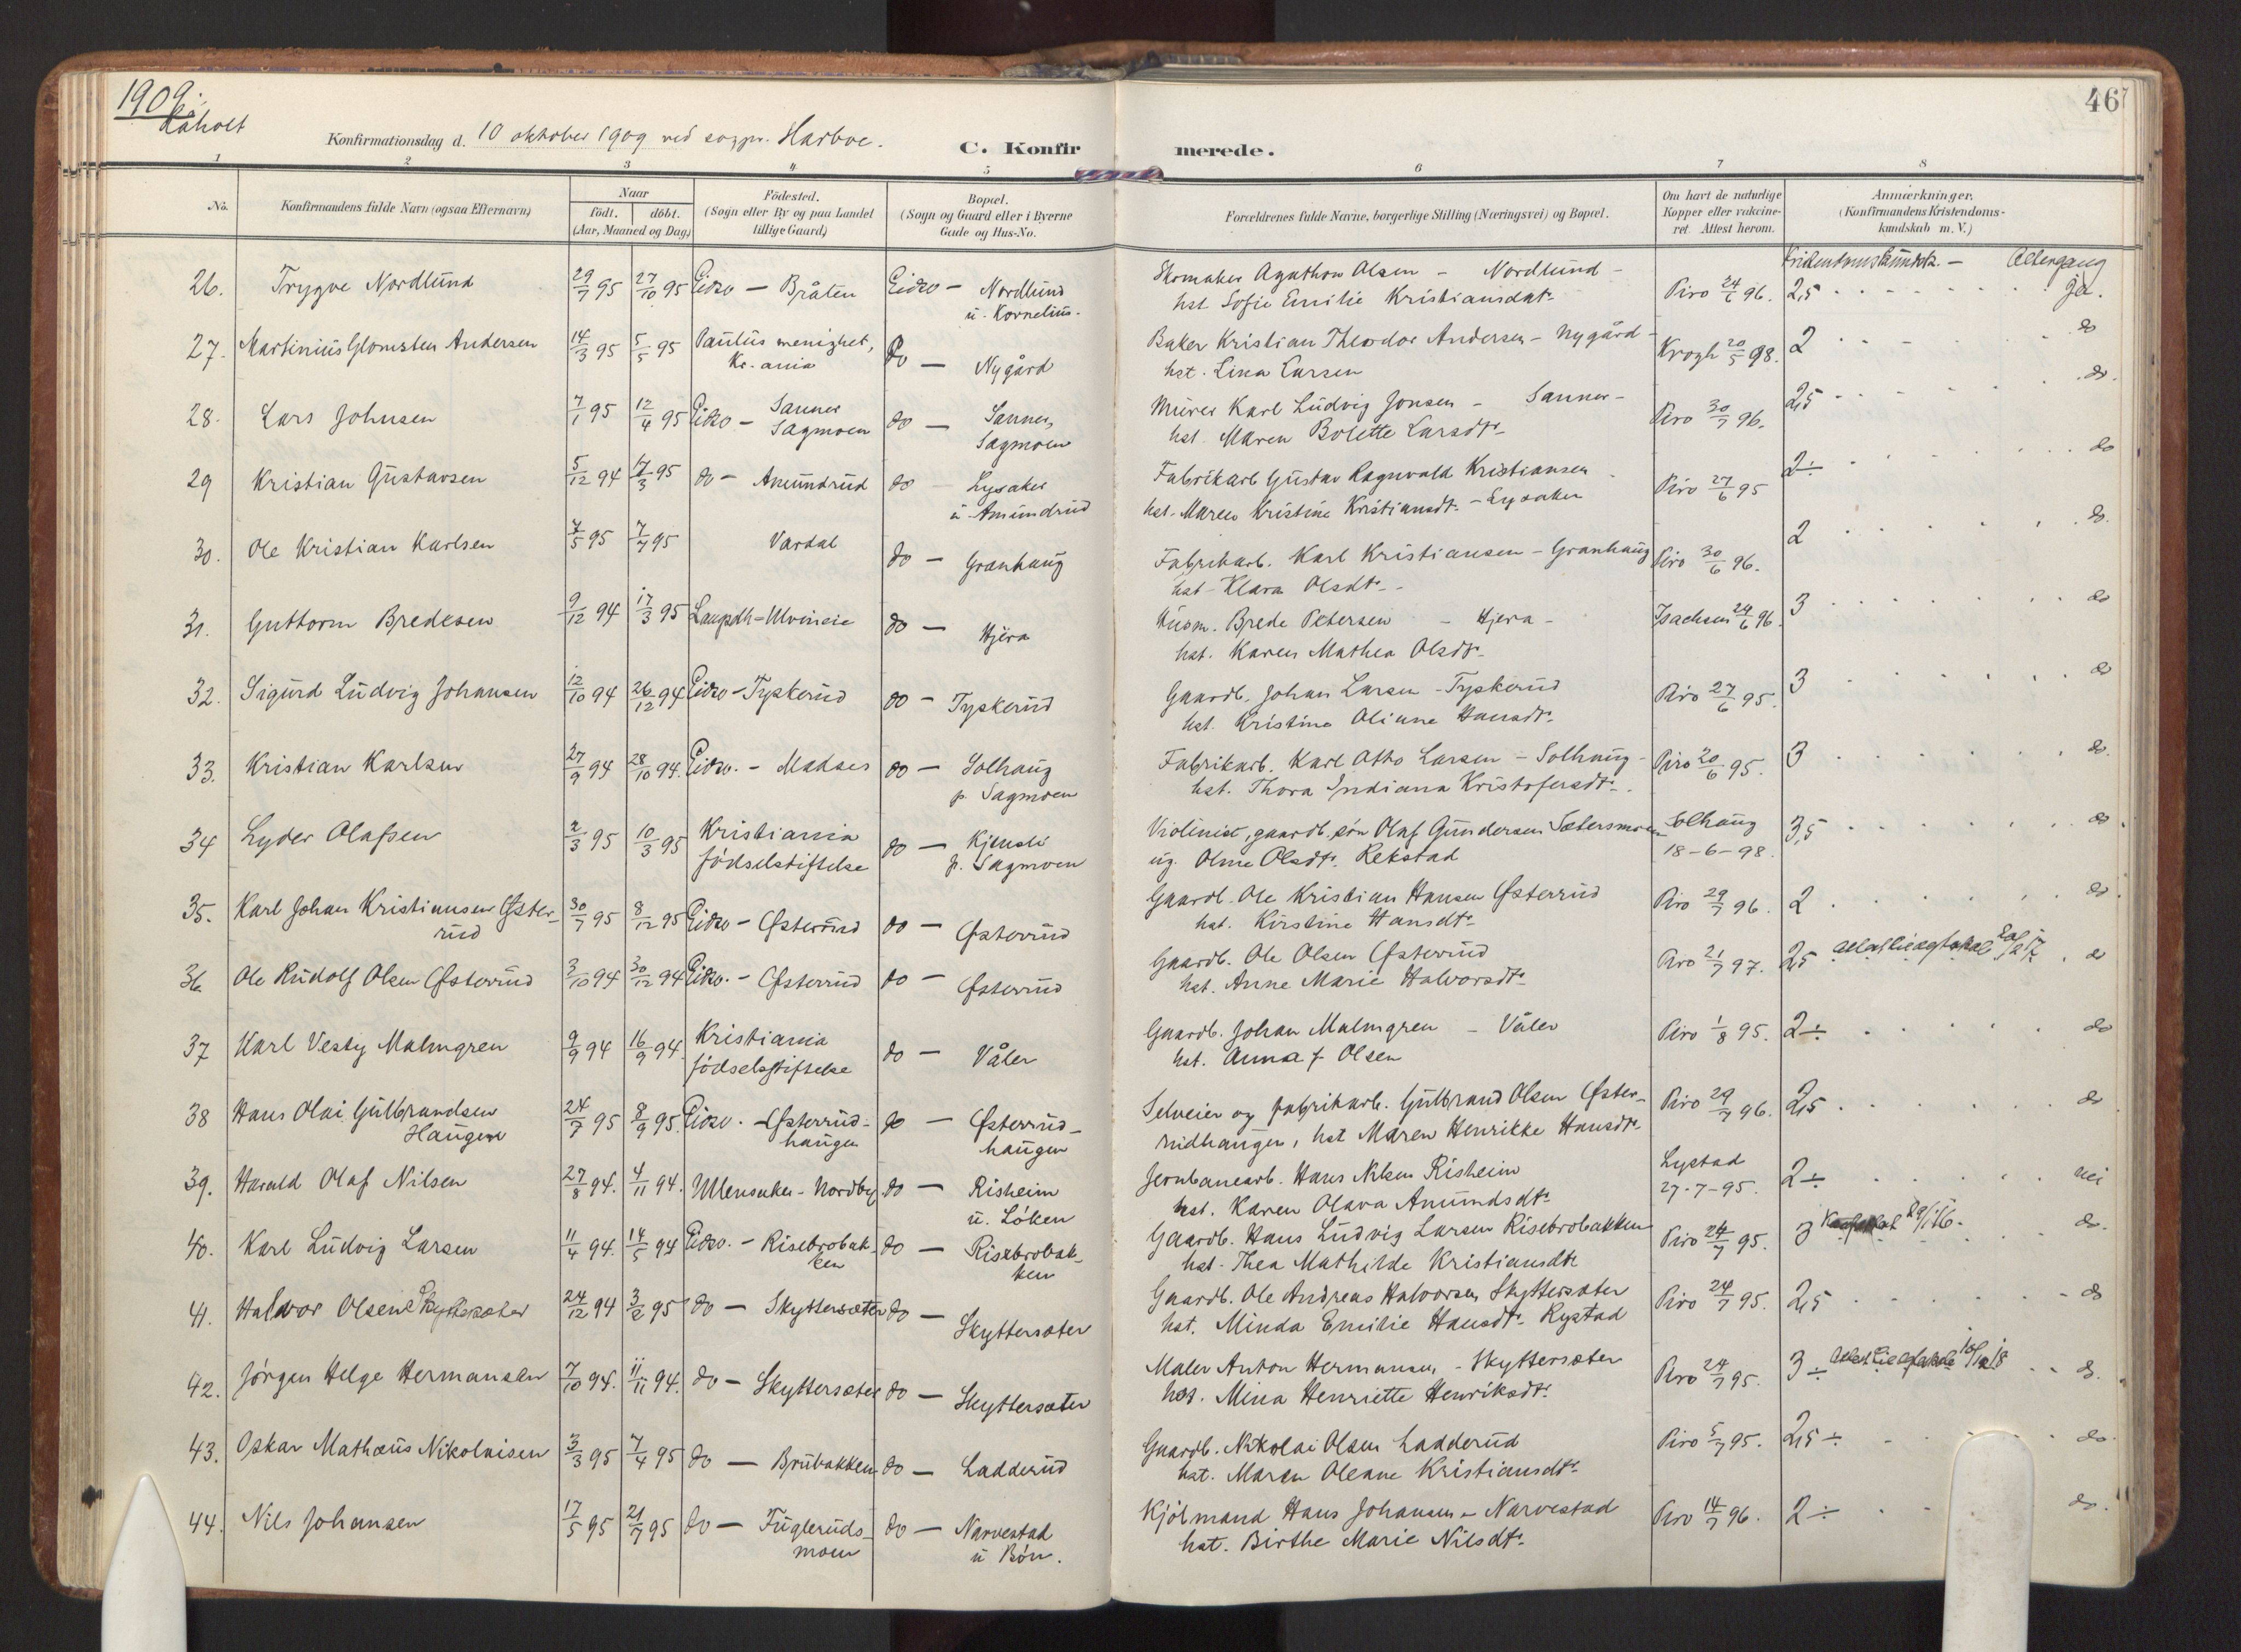 1909.
Råholt
46
Konfirmationsdag d. 10 oktober 1909 ved sogpr. Harboe.
C. Konfirmerede.
1 2 3 4 5 6 7 8
No.
Konfirmandens fulde Navn (ogsaa Efternavn)
Naar
födt. döbt.
(Aar, Maaned og Dag)
Födested.
(Sogn eller By og paa Landet
tillige Gaard)
Bopæl.
(Sogn og Gaard eller i Byerne
Gade og Hus-No.
Forældrenes fulde Navne, borgerlige Stilling (Næringsvei) og Bopæl.
Om havt de naturlige
Kopper eller vakcine-
ret. Attest herom.
Anmærkninger.
(Konfirmandens Kristendoms-
kundskab m. V.)
Kristendomskundsk. — Altergang
26. Trygve Nordlund 29/7 95 27/10 95 Eidsv — Bråten Eidsv — Nordlund u. Kornelius. Skomaker Agathon Olsen — Nordlund — Piro 24/6 96. 2,5 ja.
hst. Sofie Emilie Kristiansdtr.
27. Martinius Glomsten Andersen 14/3 95 5/5 95 Paulus menighet, Kr.ania do — Nygård Baker Kristian Theodor Andersen — Nygård — Krogh 20/5 98. 2 do
hst. Lina Larsen
28. Lars Johnsen 7/1 95 12/4 95 Eidsv. — Sanner Sagmoen do — Sanner, Sagmoen Murer Karl Ludvig Jonsen — Sanner — Piro 30/7 96. 2,5 do.
hst. Maren Bolette Larsdtr
29 Kristian Gustavsen 5/12 94 17/3 95 do — Amundrud do — Lysaker u. Amundrud Fabrikarb Gustav Ragnvald Kristiansen Piro 27/6 95 2÷ do
hst. Maren Kristine Kristiansdtr. — Lysaker
30. Ole Kristian Karlsen 7/5 95 7/7 95 Vardal do — Granhaug Fabrikarb. Karl Kristiansen — Granhaug Piro 30/6 96. 2 do.
hst. Klara Olsdtr.
31. Guttorm Bredesen 9/12 94 17/3 95 do — Hjera Husm. Brede Petersen — Hjera — Isachsen 24/6 96. 3 do
hst. Karen Mathea Olsdtr
32. Sigurd Ludvig Johansen 12/10 94 26/12 94 Eidsv — Tyskerud do — Tyskerud Gaardb. Johan Larsen — Tyskerud Piro 27/6 95. 3 do
hst. Kristine Oliane Hansdtr.
33. Kristian Karlsen 27/9 94 28/10 94. Eidsv. — Madses do — Solhaug p. Sagmoen Fabrikarb. Karl Otto Larsen — Solhaug — Piro 20/6 95. 3 do.
hst. Thora Indiana Kristofersdtr.
34 Lyder Olafsen 2/3 95 10/3 95 Kristiania födselsstiftelse do — p. Sagmoen Violinist, gaardb. søn Olaf Gundersen Sætersmoen Solhaug 18-6-98. 3,5 do
ug. Olme Olsdtr. Rekstad
35. Karl Johan Kristiansen Østerrud 30/7 95 8/12 95 Eidsv — Østerrud do — Østerrud Gaardb. Ole Kristian Hansen Østerrud Piro 29/7 96. 2 do.
hst. Kirstine Hansdtr.
36. Ole Rudolf Olsen Østerrud 3/10 94 30/12 94 Eidsv. — Østerrud do — Østerrud Gaardb. Ole Olsen Østerrud Piro 21/7 97. 2,5 do
hst. Anne Marie Halvorsdtr
37 Karl Vesty Malmgren 9/9 94 16/9 94. Kristiania födselsstiftelse do — Våler Gaardb. Johan Malmgren — Våler Piro 1/8 95. 2÷ do
hst. Anna f Olsen
38 Hans Olai Gulbrandsen Haugen 24/7 95 8/9 95. Eidsv. — Østerrudhaugen do — Østerrudhaugen Selveier og fabrikarb. Gulbrand Olsen Øster- Piro 29/7 96. 2,5 do
rudhaugen, hst Maren Henrikke Hansdtr.
39. Harald Olaf Nilsen 27/8 94. 4/11 94. Ullensaker — Nordby do — Risheim u. Löken Jernbanearb. Hans Nilsen Risheim Lystad 27-7-95. 2÷ nei
hst. Karen Olava Amundsdtr
40. Karl Ludvig Larsen 11/4 94. 14/5 94 Eidsv. — Risebrobakken do — Risebrobakken Gaardb. Hans Ludvig Larsen Risebrobakken Piro 24/7 95. 3 do.
hst. Thea Mathilde Kristiansdtr
41. Halvor Olsen Skyttersæter 24/12 94 3/2 95 do — Skyttersæter do — Skyttersæter Gaardb. Ole Andreas Halvorsen Skyttersæter Piro 24/7 95. 2,5 do
hst. Minda Emilie Hansdtr. Rystad
42. Jörgen Helge Hermansen 7/10 94. 11/11 94. do — Skyttersæter do — Skyttersæter Maler Anton Hermansen — Skyttersæter Piro 24/7 95. 3÷ do.
hst. Mina Henriette Henriksdtr.
43. Oskar Mathæus Nikolaisen 3/3 95 7/4 95 do — Brubakken do — Ladderud Gaardb. Nikolai Olsen Ladderud Piro 5/7 95. 2,5÷ do.
hst. Maren Oleane Kristiansdtr.
44. Nils Johansen 17/5 95 21/7 95 do — Fugleruds- moen do — Narvestad u Bön. Kjölmand Hans Johansen — Narvestad Piro 14/7 96. 2÷ do.
hst. Birthe Marie Nilsdtr.